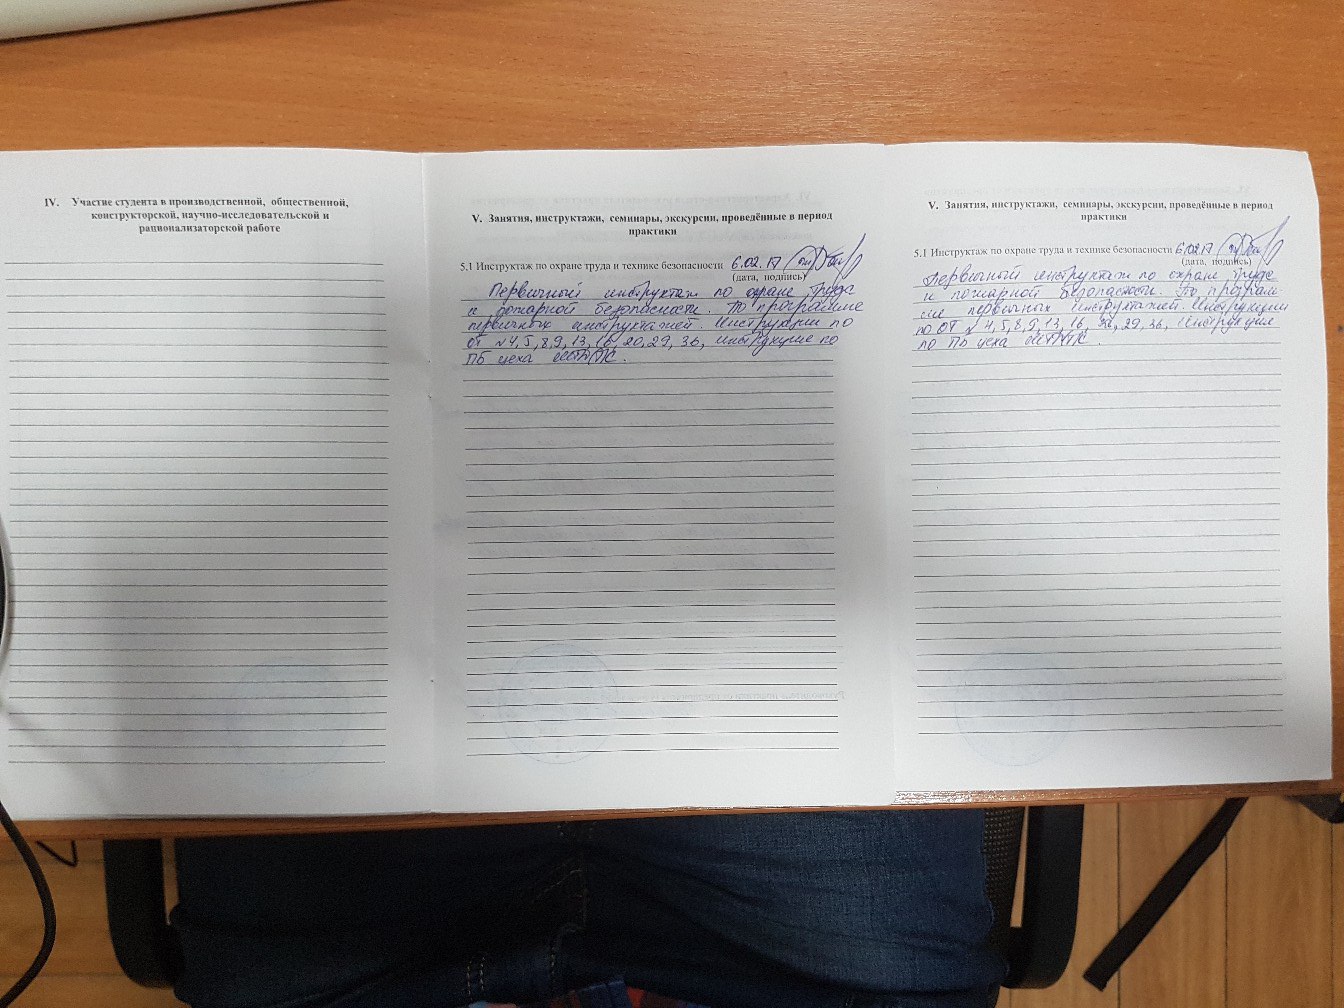 IV. Участие студента в производственной, общественной,
конструкторской, научно-исследовательской и
рационализаторской работе
V. Занятия, инструктажи, семинары, экскурсии, проведённые в период
практики
5.1 Инструктаж по охране труда и технике безопасности 6.02.17
(дата, подпись)
Первичный инструктаж по охране труда
и пожарной безопасности. По программе
первичных инструктажей. Инструкции по
ОТ №4,5,8,9,13,16,20,29,36, инструкция по
ПБ цеха
V. Занятия, инструктажи, семинары, экскурсии, проведённые в период
практики
5.1 Инструктаж по охране труда и технике безопасности 6.02.17
(дата, подпись)
Первичный инструктаж по охране труда
и пожарной безопасности. По програм
ме первичных инструктажей. Инструкции
по ОТ № 4,5,8,9,13,16, 29.36, Инструкция
по ПБ цеха